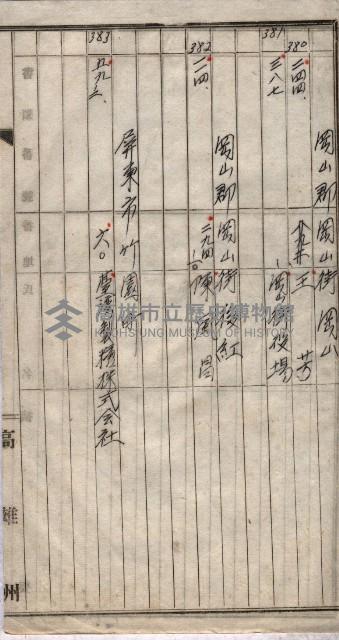 380
岡山郡岡山街岡山
二四四
王芳
381
三八七
岡山街役場
382
岡山郡岡山街後紅
二四
二九四
陳
昌
383
屏東市竹園町
五九三
六〇
臺灣製糖株式会社
高雄州
高雄市立歷史博物館
KAOHSIUNG MUSEUM OF HISTORY